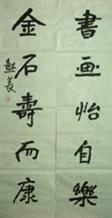 書画怡自樂
金石壽而康